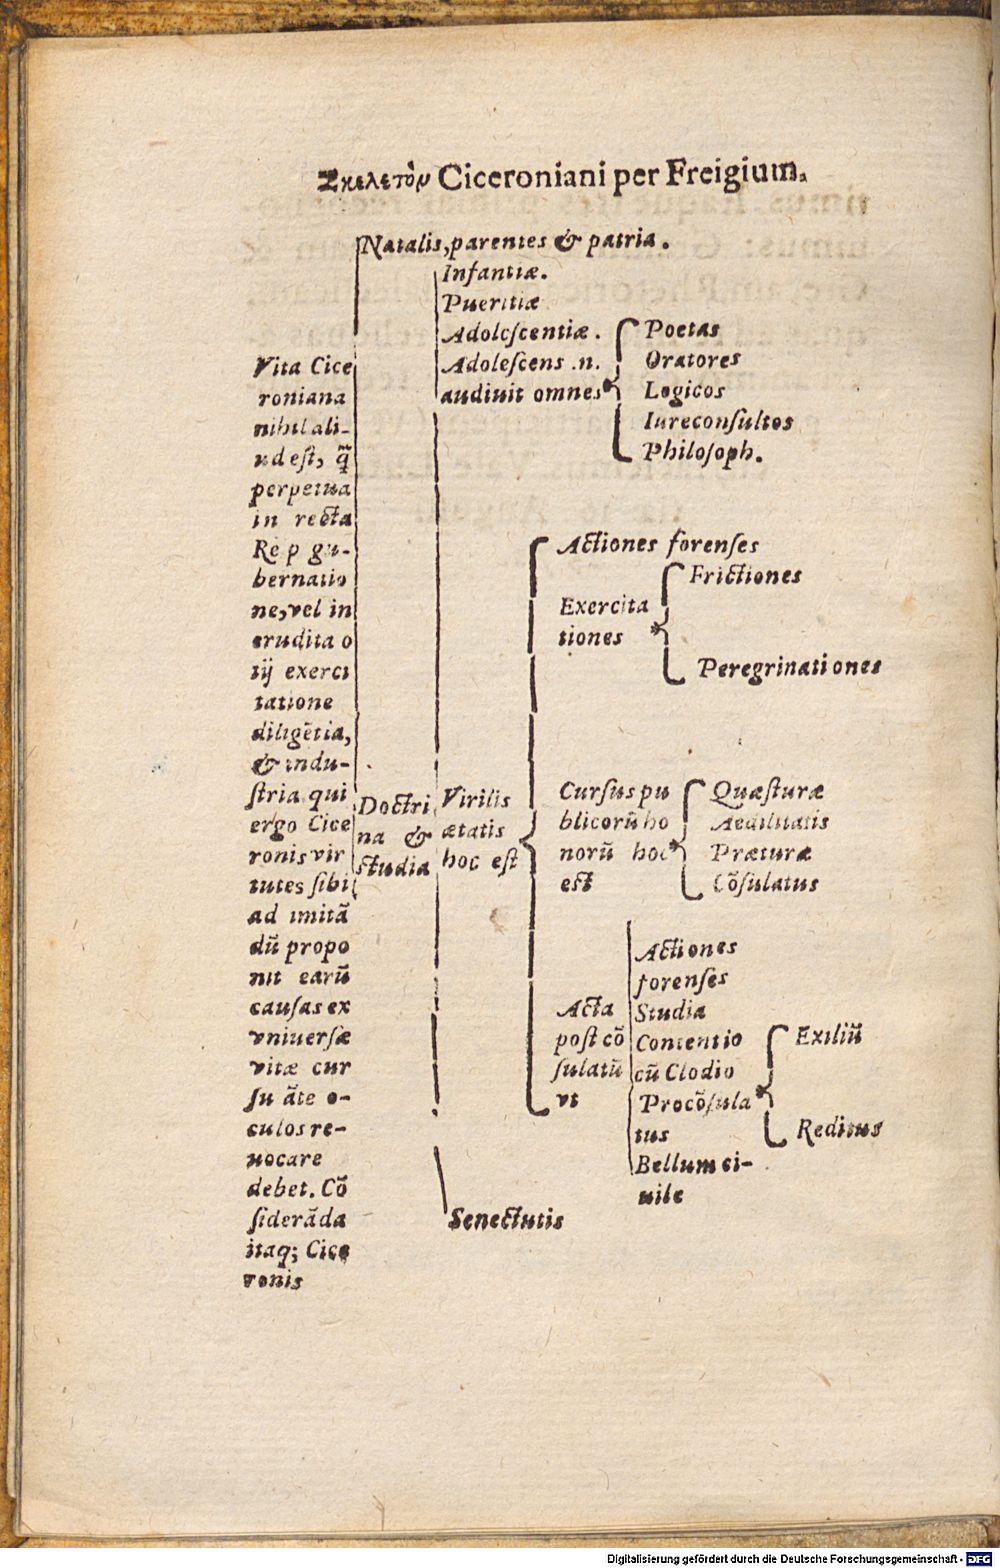 Σκελετὸν Ciceroniani per Freigium.
Natalis, parentes & patria.
Vita Cice
roniana
nihil ali-
ud est, q̃
perpetua
in recta
Rep gu-
bernatio
ne, vel in
erudita o
tij exerci
tatione
diligẽtia,
& indu-
stria qui
ergo Cice
ronis vir
tutes sibi
ad imitã
dũ propo
nit earũ
causas ex
vniuersæ
vitæ cur
su ãte o-
culos re-
uocare
debet. Cõ
siderãda
itaq; Cice
ronis
Doctri
na &
studia
Infantiæ.
Pueritiæ
Adolescentiæ.
Adolescens .n.
audiuit omnes
Poetas
Oratores
Logicos
Iureconsultos
Philosoph.
Virilis
ætatis
hoc est
Actiones forenses
Exercita
tiones
Frictiones
Peregrinationes
Cursus pu
blicorũ ho
norũ hoc
est
Quæsturæ
Aedilitatis
Præturæ
Cõsulatus
Acta
post cõ
sulatũ
vt
Actiones
forenses
Studia
Contentio
cũ Clodio
Procõsula
tus
Bellum ci-
uile
Exiliũ
Reditus
Senectutis
Digitalisierung gefördert durch die Deutsche Forschungsgemeinschaft - DFG